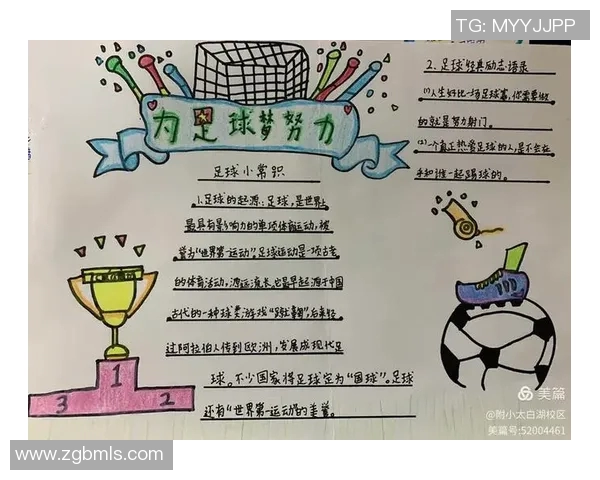 TG: MYYJJPP
为足球梦努力
足球小常识
1.足球的起源:足球,是世界上
最具有影响力的单项体育运动,被
誉为“世界第一运动”。足球运动是一项古老
的体育活动,源远流长。它最早起源于中国
古代的一种球类游戏“蹴鞠”,后来经
过阿拉伯人传到欧洲,发展成现代足
球。不少国家将足球定为“国球”。足球
还有“世界第一运动”的美誉。
2.足球经典励志语录
(1)人生好比一场足球赛,你需要做
的就是努力射门。
(2)一个真正热爱足球的人,是不会在
乎和谁一起踢球的。
3
1
2
美篇
@附小太白湖校区
美篇号:52004461
www.zgbmls.com